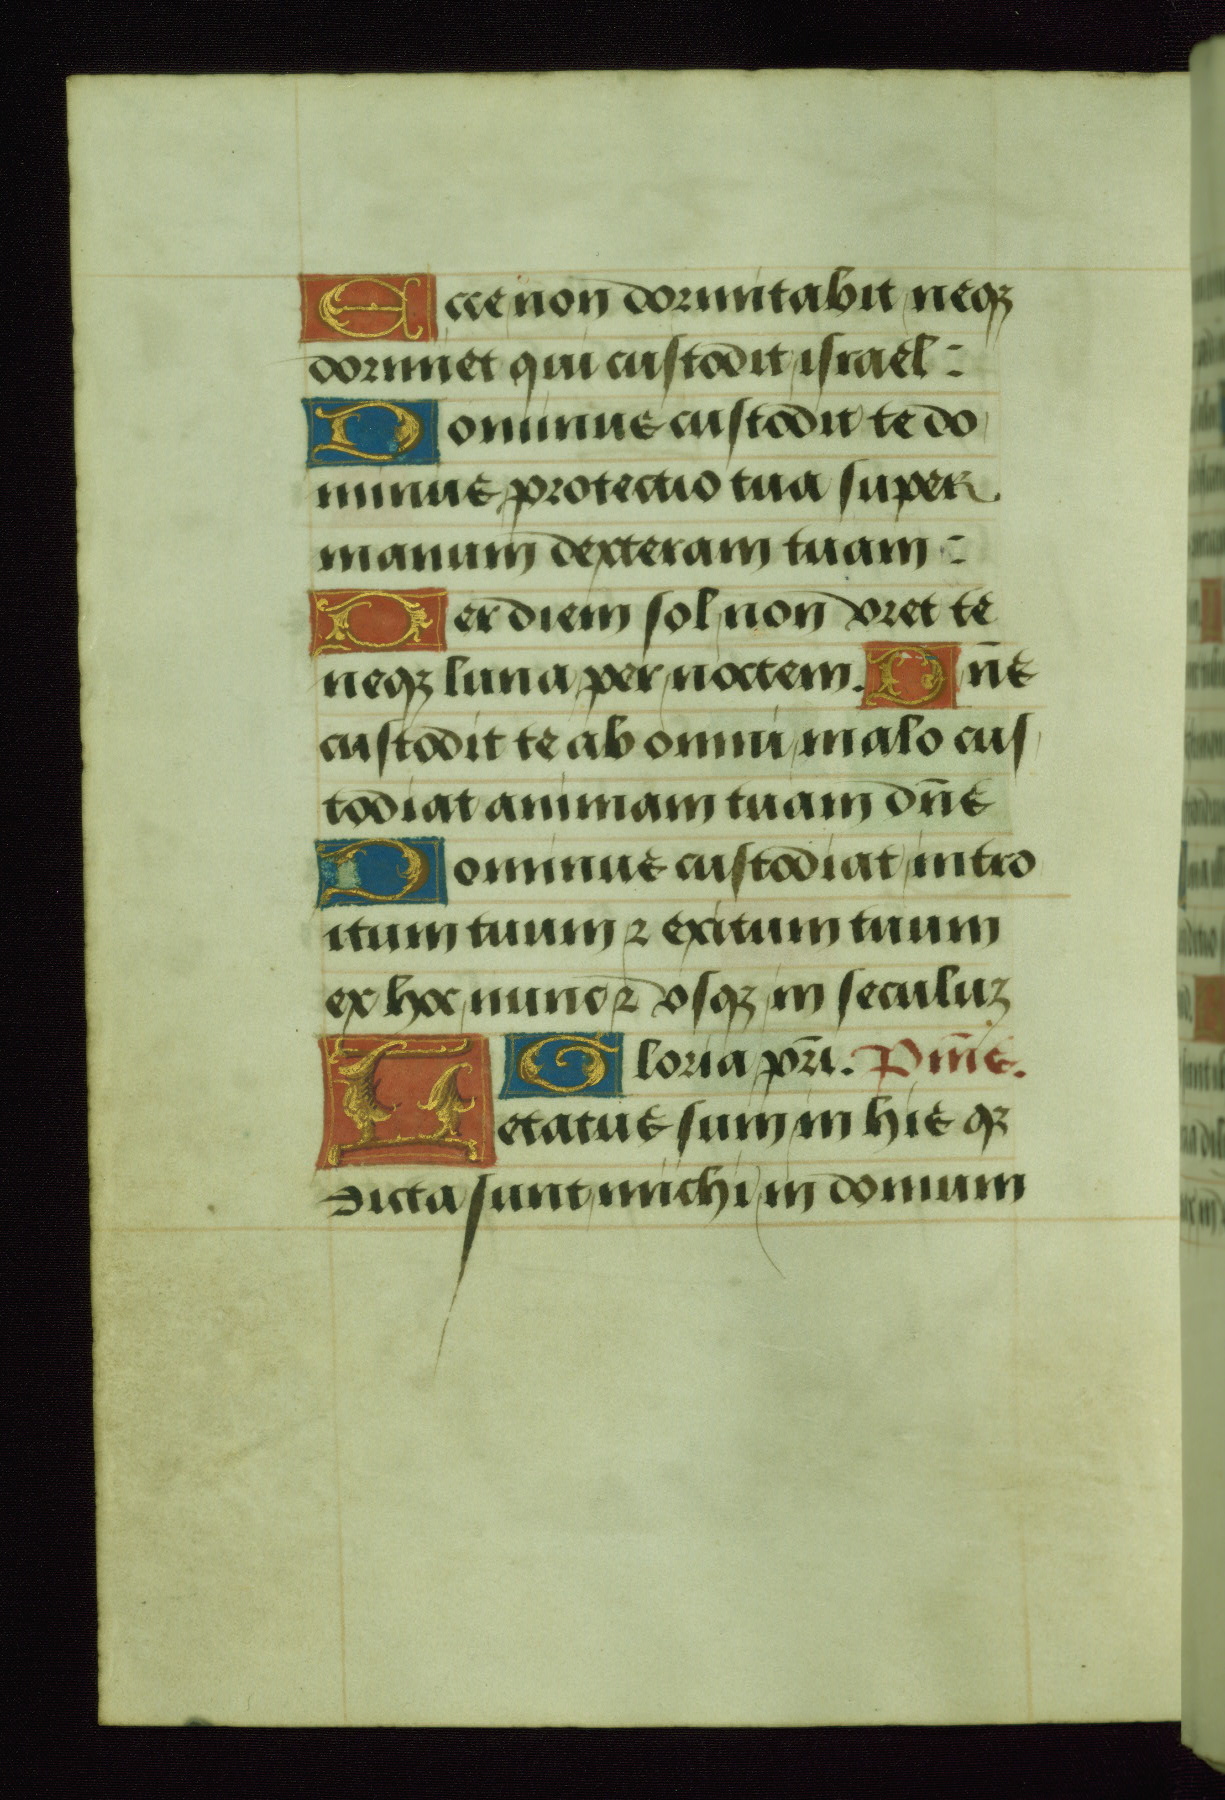 Ecce non dormitabit neqꝫ
dormiet qui custodit israel :
Dominus custodit te do
minus protectio tua super
manum dexteram tuam :
Per diem sol non vret te
neqꝫ luna per noctem. Dn̄s
custodit te ab omni malo cus
todiat animam tuam dn̄s
Dominus custodiat intro
itum tuum ⁊ exitum tuum
ex hoc nunc ⁊ vsqꝫ in seculuꝫ
Gloria pr̄i. Psm̄s.
Letatus sum in his qꝫ
dicta sunt michi in domum